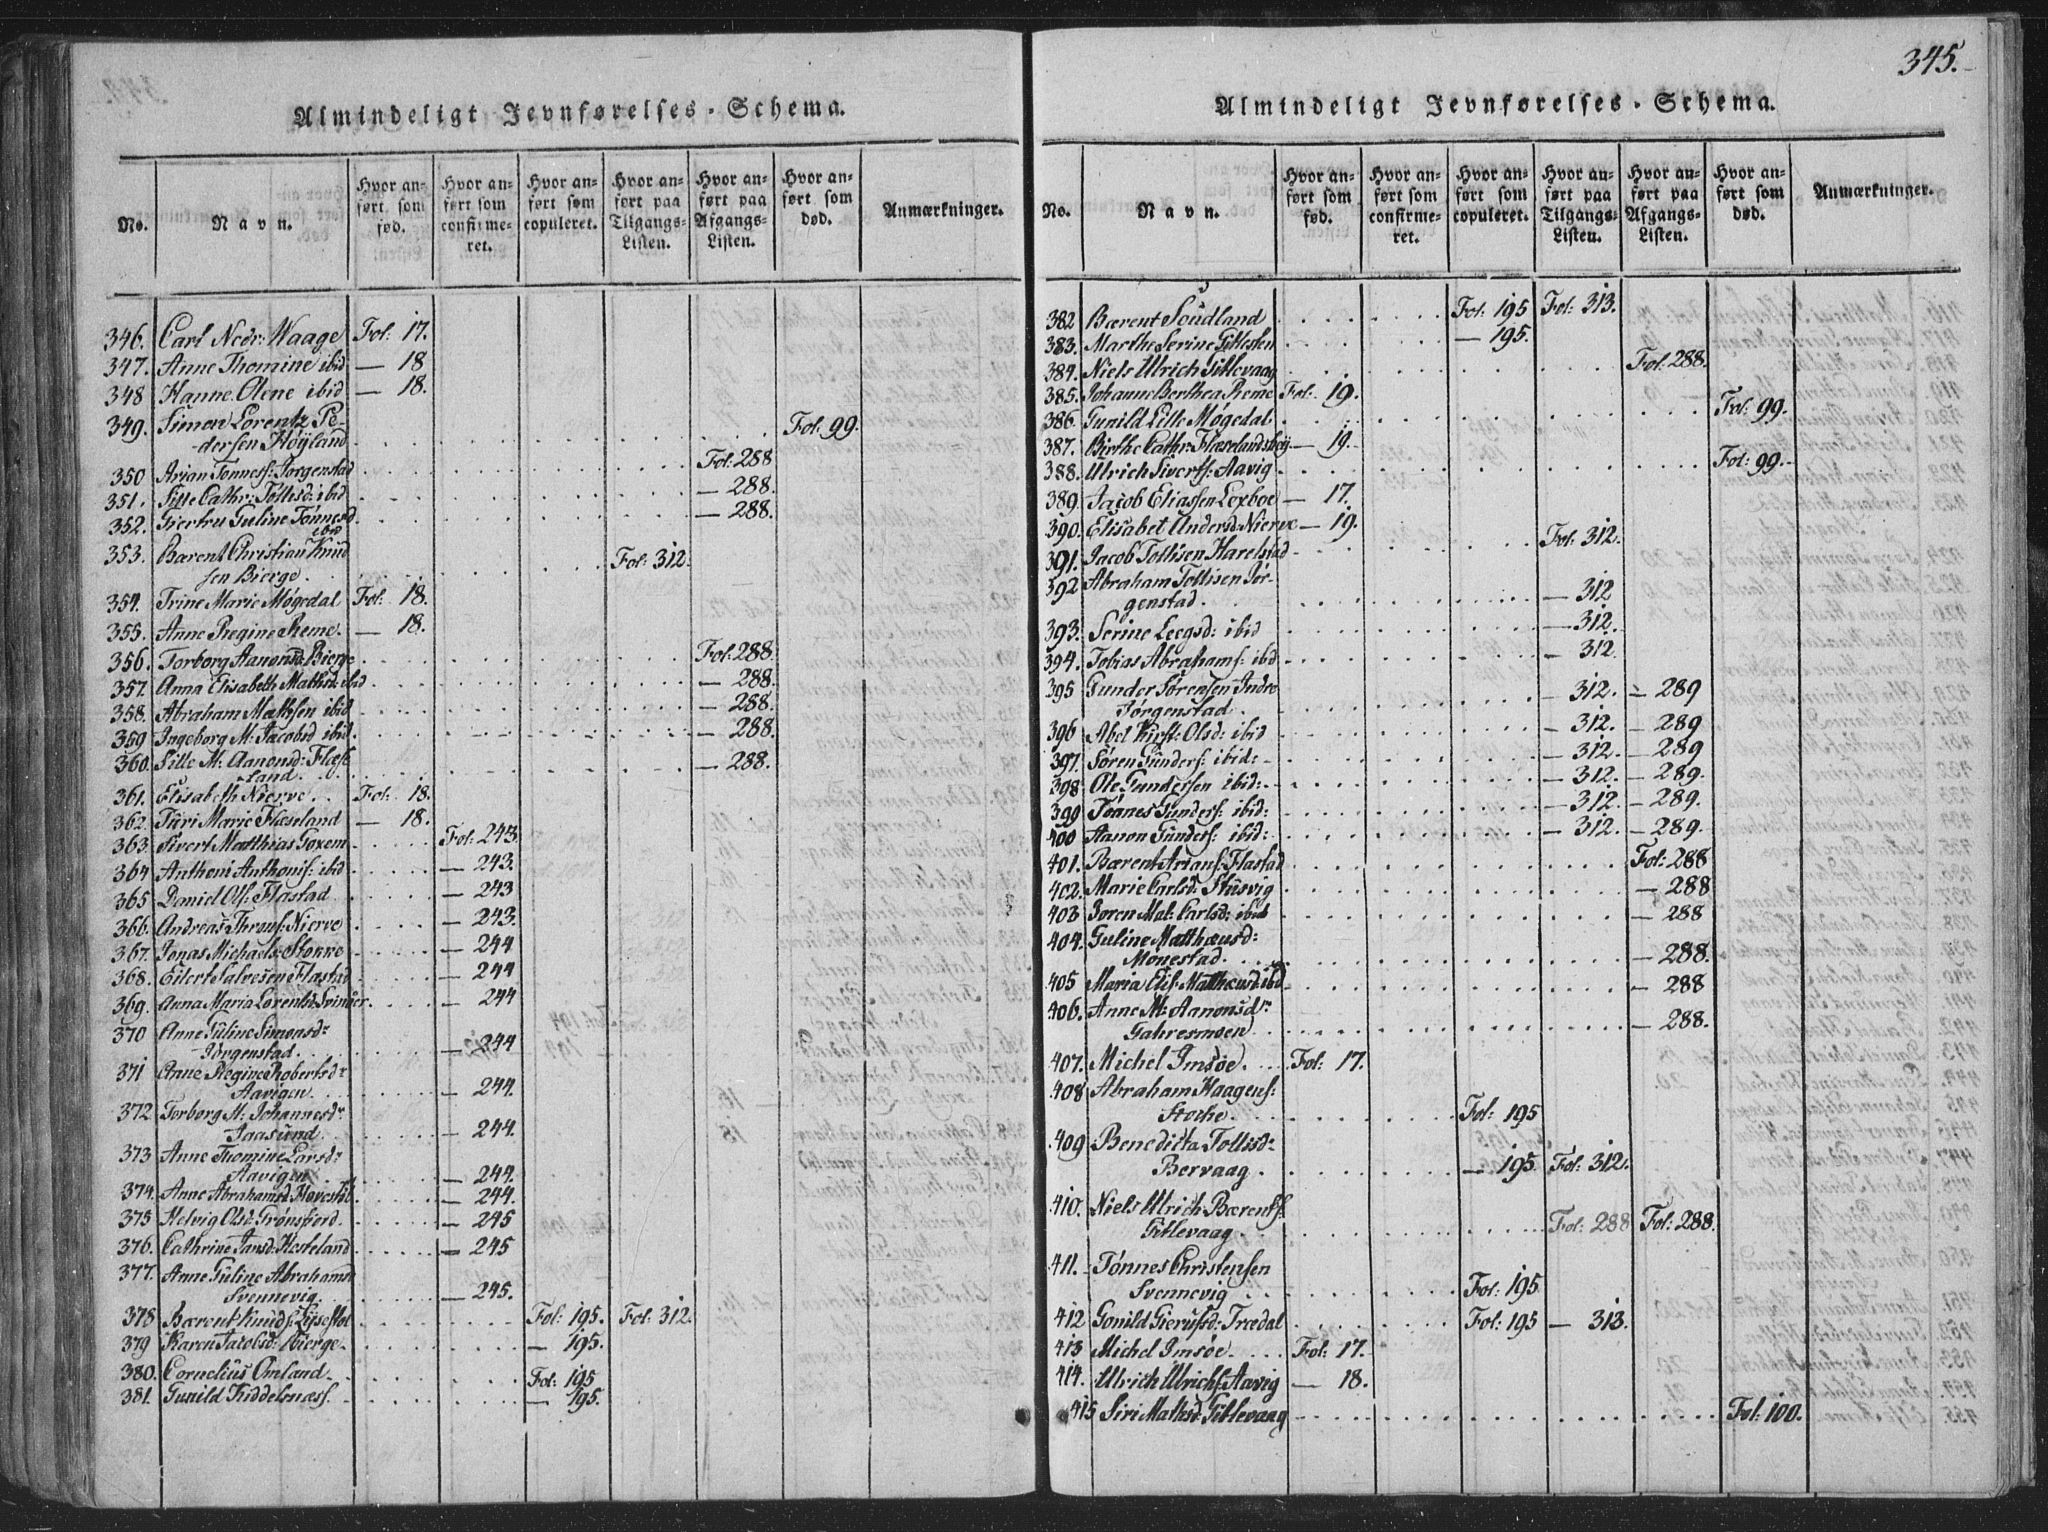 345.
Almindeligt Jevnførelses-Schema.
No.
Navn.
Hvor anført som fød.
Hvor anført som confirmeret.
Hvor anført som copuleret.
Hvor anført paa Tilgangs-Listen.
Hvor anført paa Afgangs-Listen.
Hvor anført som død.
Anmærkninger.
346. Carl Nedr: Waage Fol: 17.
347. Anne Thomine ibid — 18
348 Hanne Olene ibid — 18.
349. Simon Lorentz Pe-
dersen Høyland Fol: 99.
350 Arian Tønness: Jorgenstad Fol: 288
351. Sille Cathr: Tollisd: ibid — 288.
352. Giertru Guline Tønnesd — 288.
ibid
353. Barent Christian Knud
sen Bierge. Fol: 312.
354. Trine Marie Møgedal Fol: 18.
355. Anne Regine Reme. — 18.
356. Torborg Aanonsd: Bierge Fol: 288.
357. Anna Elisabeth Mathisd: ibid — 288.
358. Abraham Mathsen ibid — 288.
359 Ingeborg M: Jacobsd ibid. — 288.
360. Sille M: Aanonsd: Flæse
land. — 288.
361. Elisabeth Nierve. Fol: 18.
362. Turi Marie Flæseland — 18.
363 Sivert Matthias Foxem Fol: 243.
364 Anthoni Anthonis: ibid — 243.
365 Daniel Ols: Flastad — 243
366. Andreas Throns: Nierve — 243.
367. Jonas Michaels: Stokke — 244
368. Eilert Salvesen Flastad — 244
369. Anna Maria Lorentsd: Svinøer — 244
370 Anne Guline Simonsd:
Jørgenstad. — 244
371 Anne Regine Robertsd:
Aavigen — 244.
372 Torborg M: Johannesd:
Saasund. — 244.
373 Anne Thomine Larsd:
Aavigen — 244.
374. Anne Abrahamsd — 244.
375 Helvig Olsd: Grønsfjord. — 245
376. Cathrine Jansd: — 245
377. Anne Guline Abrahamsd
Svennevig. — 245.
378 Bærent Knuds: Fol: 195. Fol: 312.
379 Karen Jacobsd: Bierge — 195.
380. Cornelius Omland. Fol: 195
381. Gunild Kiddelsnæss. — 195.
Almindeligt Jevnførelses-Schema.
No.
Navn.
Hvor anført som fød.
Hvor anført som confirmeret.
Hvor anført som copuleret.
Hvor anført paa Tilgangs-Listen.
Hvor anført paa Afgangs-Listen.
Hvor anført som død.
Anmærkninger.
382 Bærent Soudland Fol: 195 Fol: 313.
383. Marthe Serine Gitlesten — 195.
384. Niels Ulrich Gitlevaag Fol: 288.
385. Johanne Berthea Reme Fol: 19.
386 Gunild Lille Møgedal Fol: 99.
387. Birthe Cathr: Flæselandsbøy — 19.
388. Ulrich Siverts: Aavig Fol: 99.
389. Jacob Eliassen — 17.
390. Elisabet Andersd: Nierve — 19.
391. Jacob Tollisen Harelstad Fol: 312.
392 Abraham Tollisen Jør-
genstad. — 312
393. Serine Leegsd: ibid — 312.
394. Tobias Abrahams: ibid — 312.
395 Gunder Sørensen Indre — 312. — 289
Jørgenstad.
396 Abel Kirst: Olsd: ibid — 312. — 289
397. Søren Gunders: ibid: — 312. — 289
398 Ole Gundersen ibid: — 312. — 289.
399 Tønes Gunders: ibid: — 312. — 289.
400 Aanon Gunders: ibid: — 312. — 289.
401. Bærent Arians: Flastad Fol: 288
402. Marie Carlsd: Stusvig — 288
403 Joren Mal: Carlsd: ibid — 288
404. Guline Matthæusd:
Mønestad. — 288.
405 Maria Elis: Matthæusd: ibd — 288
406. Anne M: Aanonsdr
Gahresmoen — 288.
407. Michel Imsøe. Fol: 17.
408 Abraham Haagens:
Fol: 195
409 Benedicta Tollisd:
Bervaag. — 195 Fol: 312.
410. Niels Ulrich Bærents:
Gitlevaag. Fol: 288 Fol: 288.
411. Tønnes Christensen
Svennevig Fol: 195
412 Gonild Gierulsd: Trædal Fol: 195 — 313.
413 Michel Imsøe. Fol: 17.
414. Ulrich Ulrichs: Aavig — 18.
415 Siri Mathsd: Gitlevaag Fol: 100.